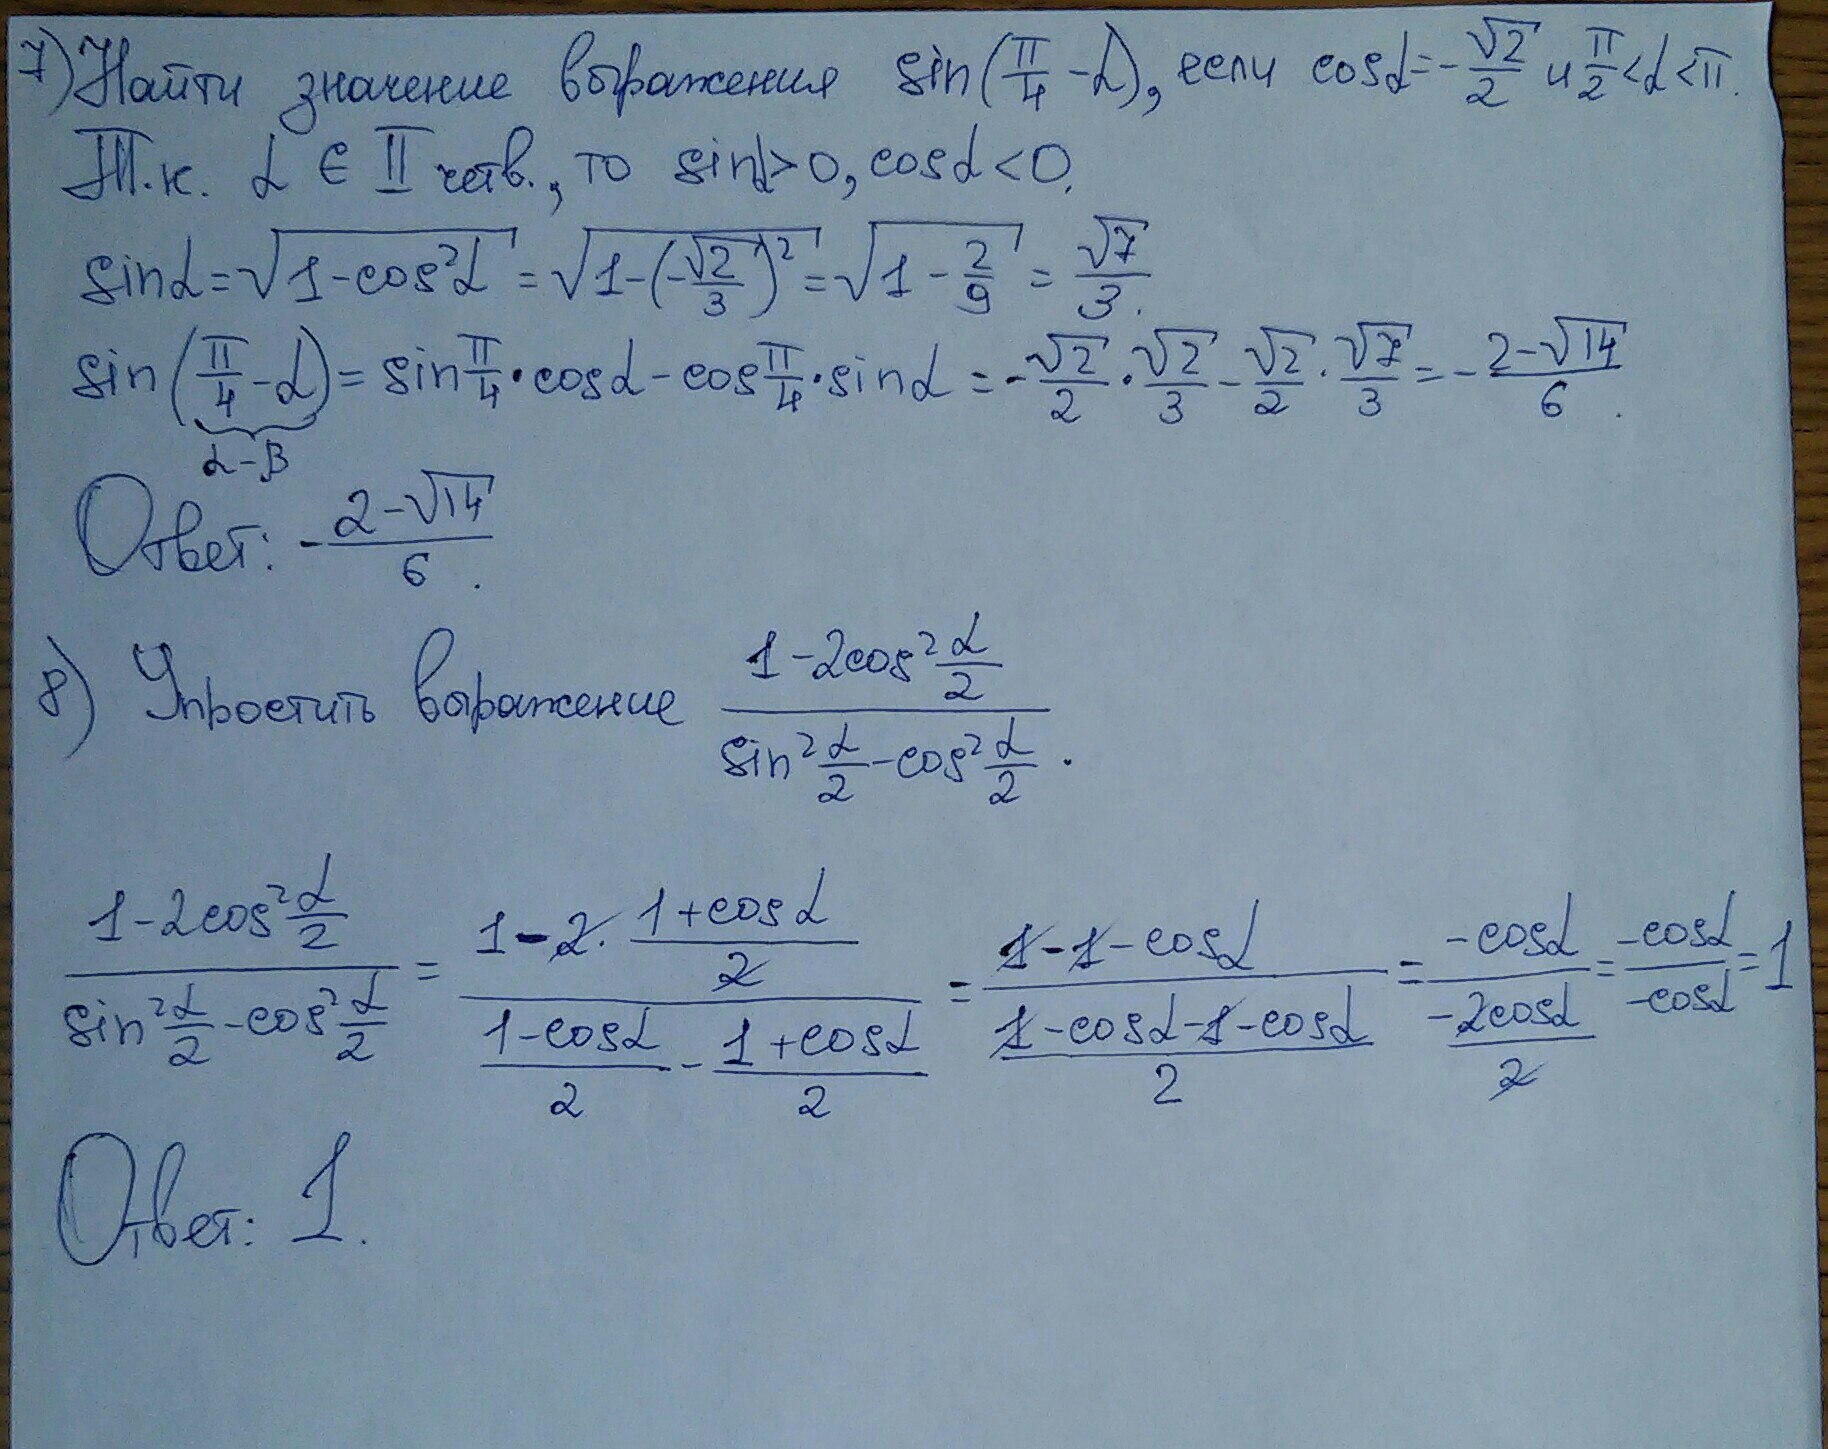 7) Найти значение выражения sin(π/4 - α), если cosα = -√2/2 и π/2 < α < π.
Т.к. α ∈ II четв., то sinα > 0, cosα < 0.
sinα = √(1 - cos²α) = √(1 - (-√2/3)²) = √(1 - 2/9) = √7/3.
sin(π/4 - α) = sin π/4 · cosα - cos π/4 · sinα = -√2/2 · √2/3 - √2/2 · √7/3 = -(2-√14)/6.
α-β
Ответ: -(2-√14)/6.
8) Упростить выражение (1 - 2cos² α/2)/(sin² α/2 - cos² α/2).
(1 - 2cos² α/2)/(sin² α/2 - cos² α/2) = (1 - 2 · (1+cosα)/2)/((1-cosα)/2 - (1+cosα)/2) = (1 - 1 - cosα)/((1 - cosα - 1 - cosα)/2) = (-cosα)/((-2cosα)/2) = (-cosα)/(-cosα) = 1
Ответ: 1.